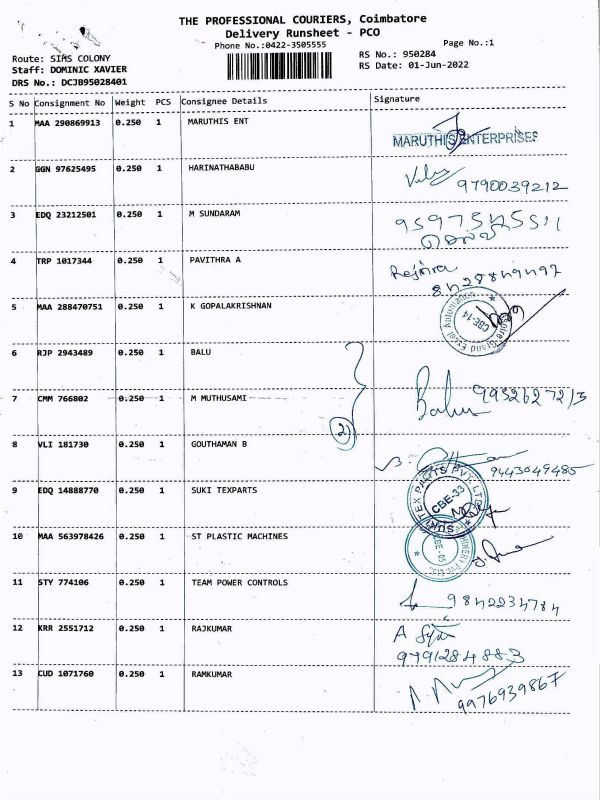 THE PROFESSIONAL COURIERS, Coimbatore
Delivery Runsheet - PCO
Phone No.:0422-3505555
Page No.:1
Route: SIHS COLONY
RS No.: 950284
Staff: DOMINIC XAVIER
RS Date: 01-Jun-2022
DRS No.: DCJB95028401
S No Consignment No Weight PCS Consignee Details Signature
1 MAA 290869913 0.250 1 MARUTHIS ENT
MARUTHIS ENTERPRISES
2 GGN 97625495 0.250 1 HARINATHABABU
9790039212
3 EDQ 23212501 0.250 1 M SUNDARAM
4 TRP 1017344 0.250 1 PAVITHRA A
5 MAA 288470751 0.250 1 K GOPALAKRISHNAN
CBE-14
6 RJP 2943489 0.250 1 BALU
7 CMM 766802 0.250 1 M MUTHUSAMI
2
Balu
8 VLI 181730 0.250 1 GOUTHAMAN B
9443049485
9 EDQ 14888770 0.250 1 SUKI TEXPARTS
SUKI TEX PARTS PVT. LTD.
CBE-33
10 MAA 563978426 0.250 1 ST PLASTIC MACHINES
11 STY 774106 0.250 1 TEAM POWER CONTROLS
9842234784
12 KRR 2551712 0.250 1 RAJKUMAR
9791284883
13 CUD 1071760 0.250 1 RAMKUMAR
9976939867